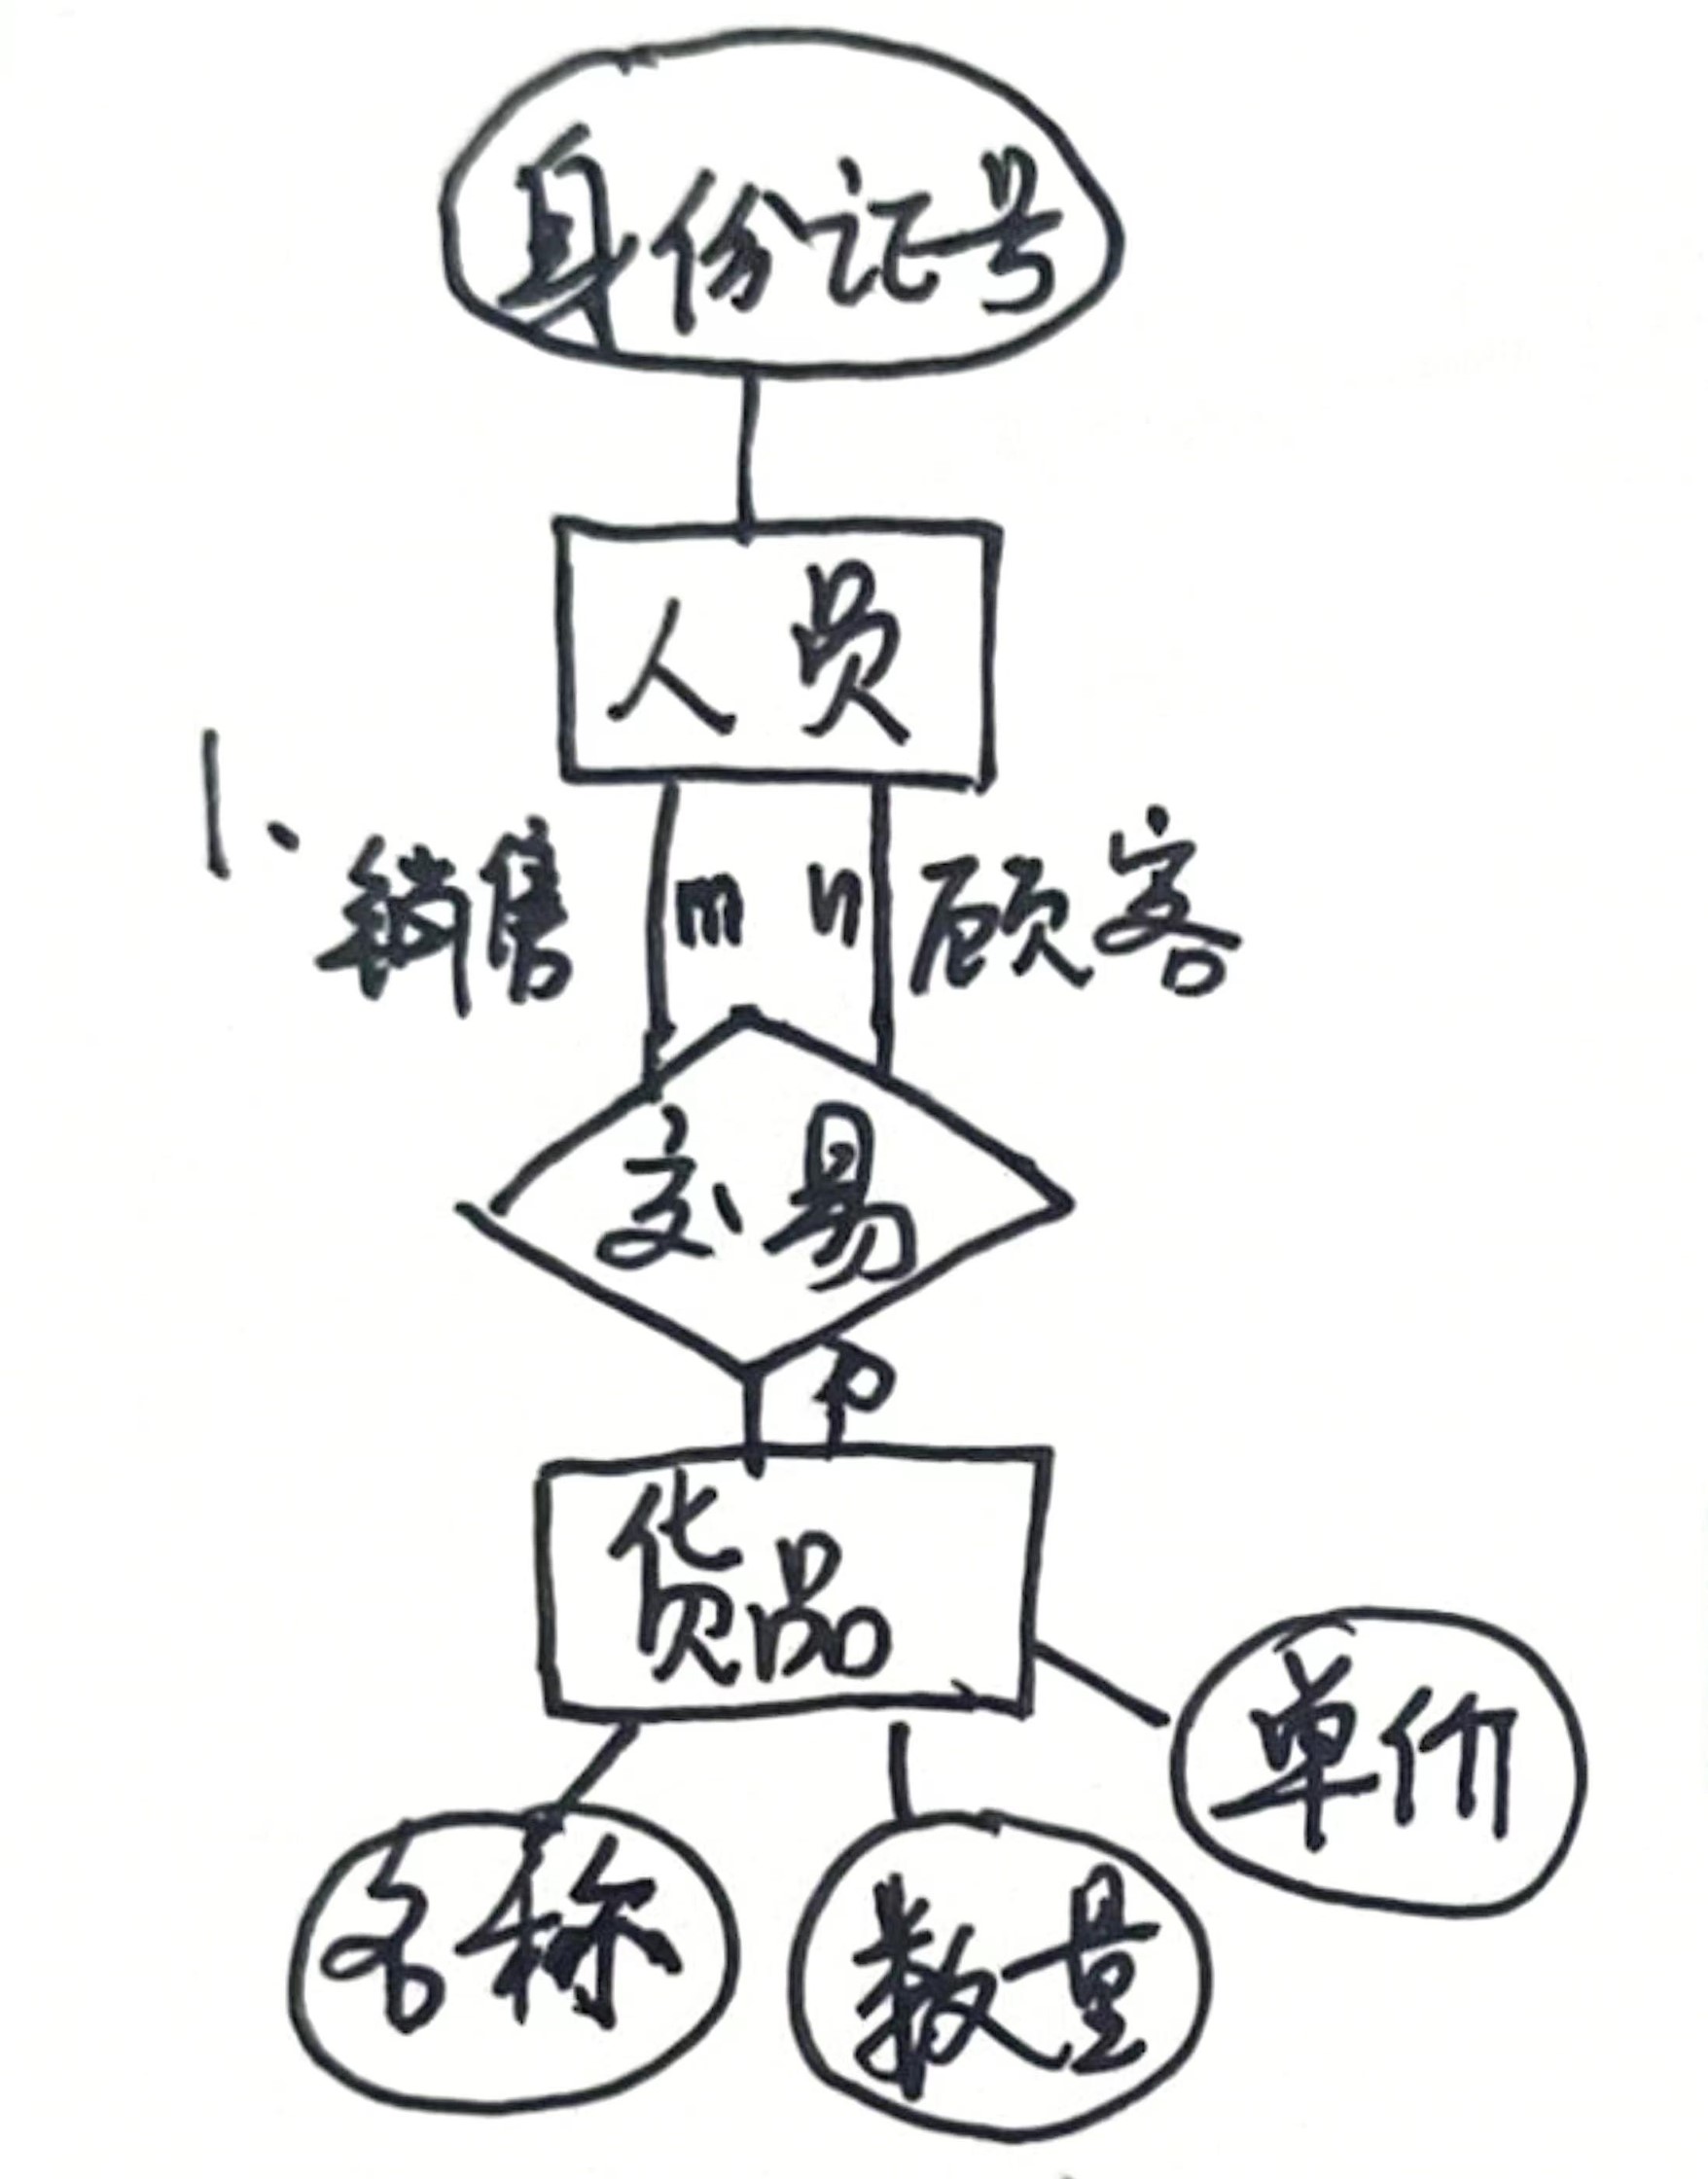 身份证号
人员
1、
销售 m n 顾客
交易
p
货品
单价
名称 数量